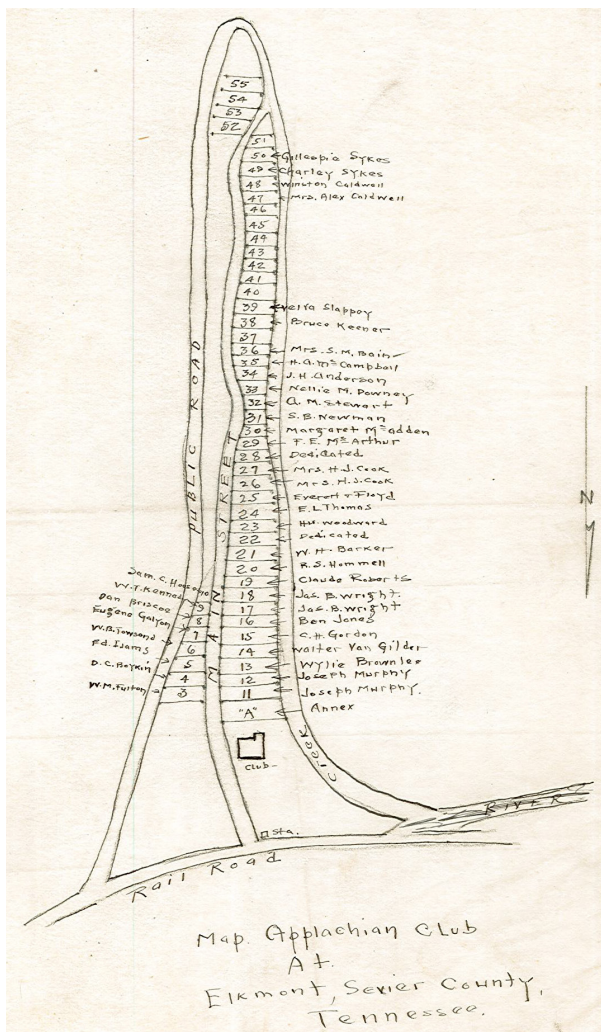 55
54
53
52
51
50 Gillespie Sykes
49 Charley Sykes
48 Winston Caldwell
47 Mrs. Alex Caldwell
46
45
44
43
42
41
40
39 Velva Slappey
38 Bruce Keener
37
36 Mrs. S. M. Bain
35 H. A. McCampbell
34 J. H. Anderson
33 Nellie M. Downey
32 A. M. Stewart
31 S. B. Newman
30 Margaret McAdden
29 F. E. McArthur
28 Dedicated
27 Mrs. H. J. Cook
26 Mrs. H. J. Cook
25 Everett & Floyd
24 E. L. Thomas
23 H.W. Woodward
22 Dedicated
21 W. H. Barker
20 R. S. Hommell
19 Claude Roberts
18 Jas. B. Wright.
17 Jas. B. Wright
16 Ben Jones
15 C. H. Gordon
14 Walter Van Gilder
13 Wylie Brownlee
12 Joseph Murphy
11 Joseph Murphy.
"A" Annex
PUBLIC ROAD
MAIN STREET
N
Sam. C.
W. T. Kennedy
Dan Briscoe 9
Eugene Galyon 8
W. B. Townsend 7
Ed. Ijams 6
D. C. Boykin 5
4
W. M. Fulton 3
Club
Creek
RIVER
Sta.
Rail Road
Map. Applachian Club
At.
Elkmont, Sevier County,
Tennessee.